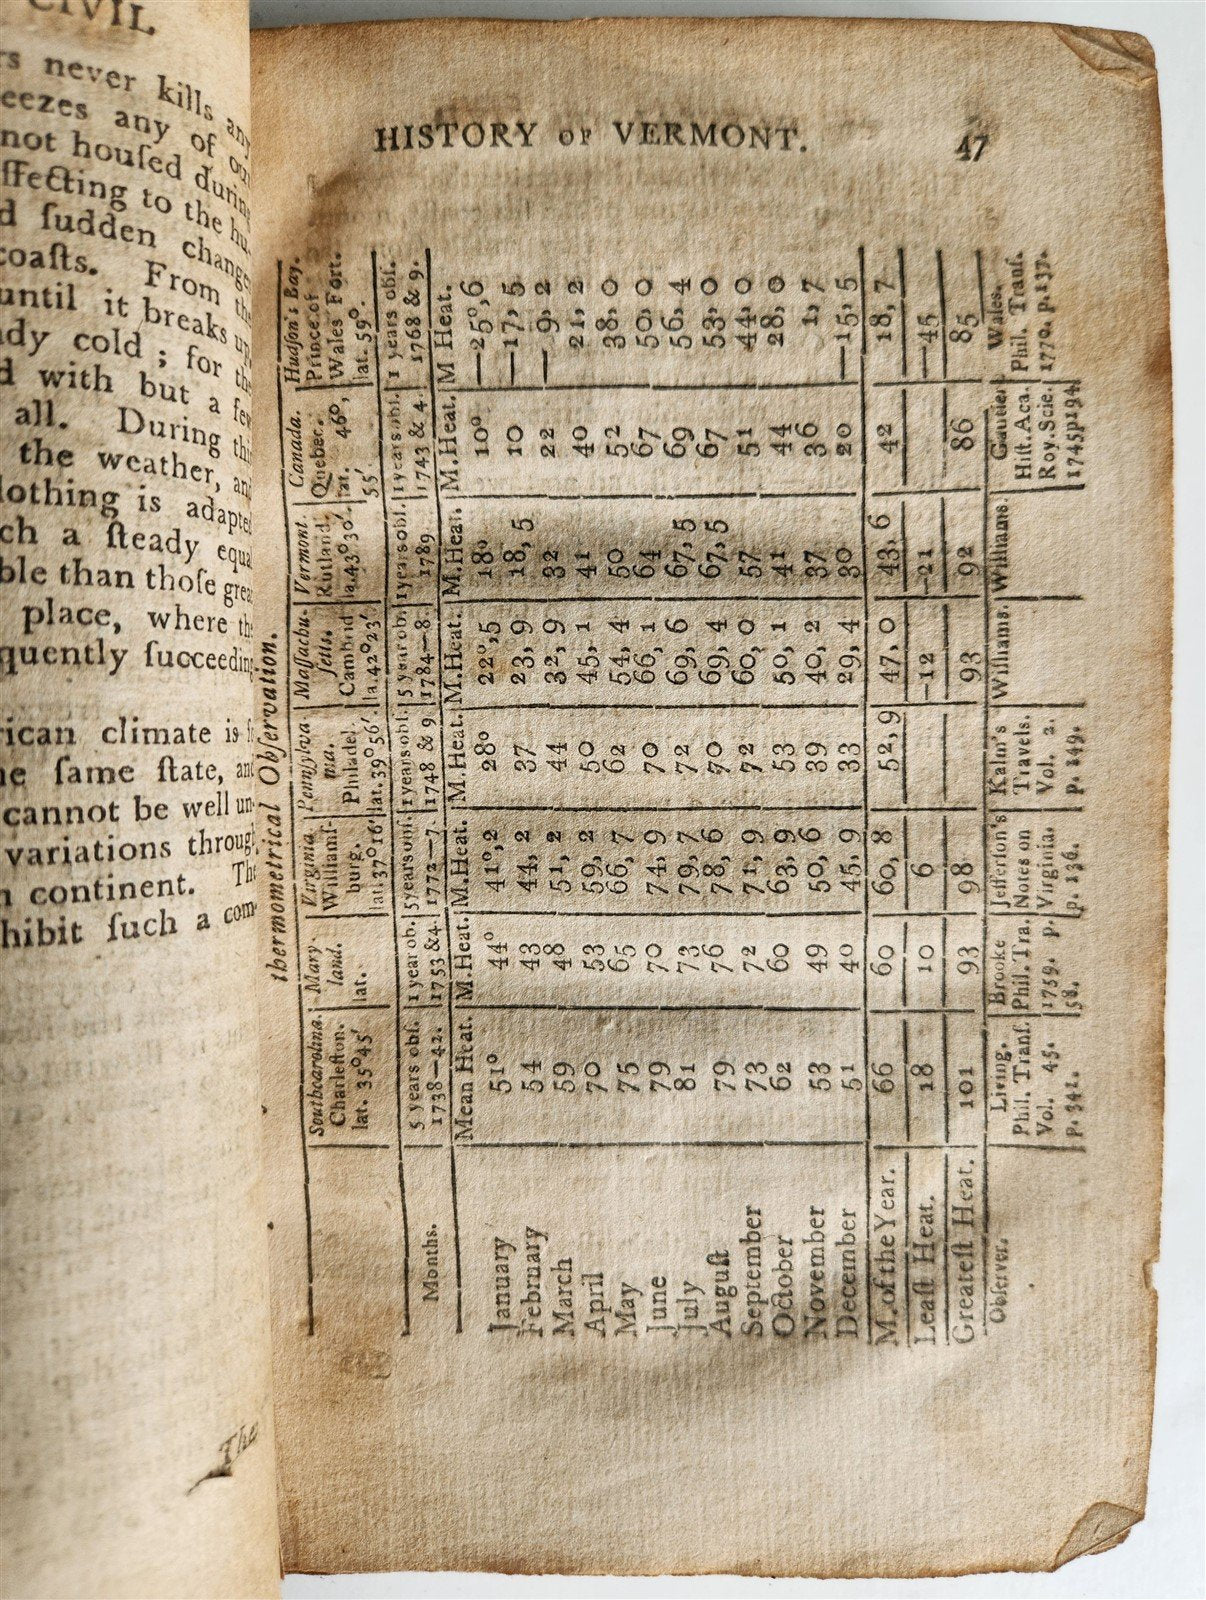 CIVIL,
rs never kills any
eezes any of our
not houſed during
ffecting to the hu-
d ſudden changes
coaſts. From the
until it breaks up,
dy cold ; for the
d with but a few
all. During this
the weather, and
lothing is adapted
ch a ſteady equal
ble than thoſe great
place, where the
quently ſucceeding
rican climate is
ne ſame ſtate, and
cannot be well un-
variations through
n continent. The
hibit ſuch a com-
The
HISTORY OF VERMONT. 47
Thermometrical Obſervation.
Southcarolina. | Mary | Virginia | Pennſylva | Maſſachu- | Vermont. | Canada. | Hudſon's Bay.
Charleſton. | land. | Williamſ- | nia. | ſetts. | Rutland. | Quebec. | Prince of
lat. 35°45′ | lat. | burg. | Philadel. | Cambrid | la.43°30′. | lat. 46°, | Wales Fort.
lat.37°16′ | lat.39°56′. | la.42°23′. | 55′ | lat. 59°.
Months. | 5 years obſ. | 1 year ob. | 5years obſ. | 1years obſ. | 5 year ob. | 1years obſ. | 1years obſ. | 1 years obſ.
1738—42. | 1753 &4. | 1772—7. | 1748 & 9. | 1784—8. | 1789. | 1743 & 4. | 1768 & 9.
Mean Heat. | M.Heat. | M.Heat. | M.Heat. | M.Heat. | M.Heat. | M.Heat. | M Heat.
January 51° 44° 41°,2 28° 22°,5 18° 10° —25°,6
February 54 43 44, 2 37 23, 9 18, 5 10 —17, 5
March 59 48 51, 2 44 32, 9 32 22 — 9, 2
April 70 53 59, 2 50 45, 1 41 40 21, 2
May 75 65 66, 7 62 54, 4 50 52 38, 0
June 79 70 74, 9 70 66, 1 64 67 50, 0
July 81 73 79, 7 72 69, 6 67, 5 69 56, 4
Auguſt 79 76 78, 6 70 69, 4 67, 5 67 53, 0
September 73 72 71, 9 72 60, 0 57 51 44, 0
October 62 60 63, 9 53 50, 1 41 44 28, 0
November 53 49 50, 6 39 40, 2 37 36 1, 7
December 51 40 45, 9 33 29, 4 30 20 —15, 5
M. of the Year. 66 60 60, 8 52, 9 47, 0 43, 6 42 18, 7
Leaſt Heat. 18 10 6 —12 —21 —45
Greateſt Heat. 101 93 98 93 92 86 85
Obſerver. | Living. | Brooke | Jefferſon's | Kalm's | Williams. | Williams. | Gautier | Wales.
Phil. Tranſ. | Phil. Tra. | Notes on | Travels. | Hiſt. Aca. | Phil. Tranſ.
Vol. 45. | 1759. p. | Virginia. | Vol. 2. | Roy.Scie. | 1770. p.137.
p. 342. | 58. | p. 136. | p. 249. | 1745p194.